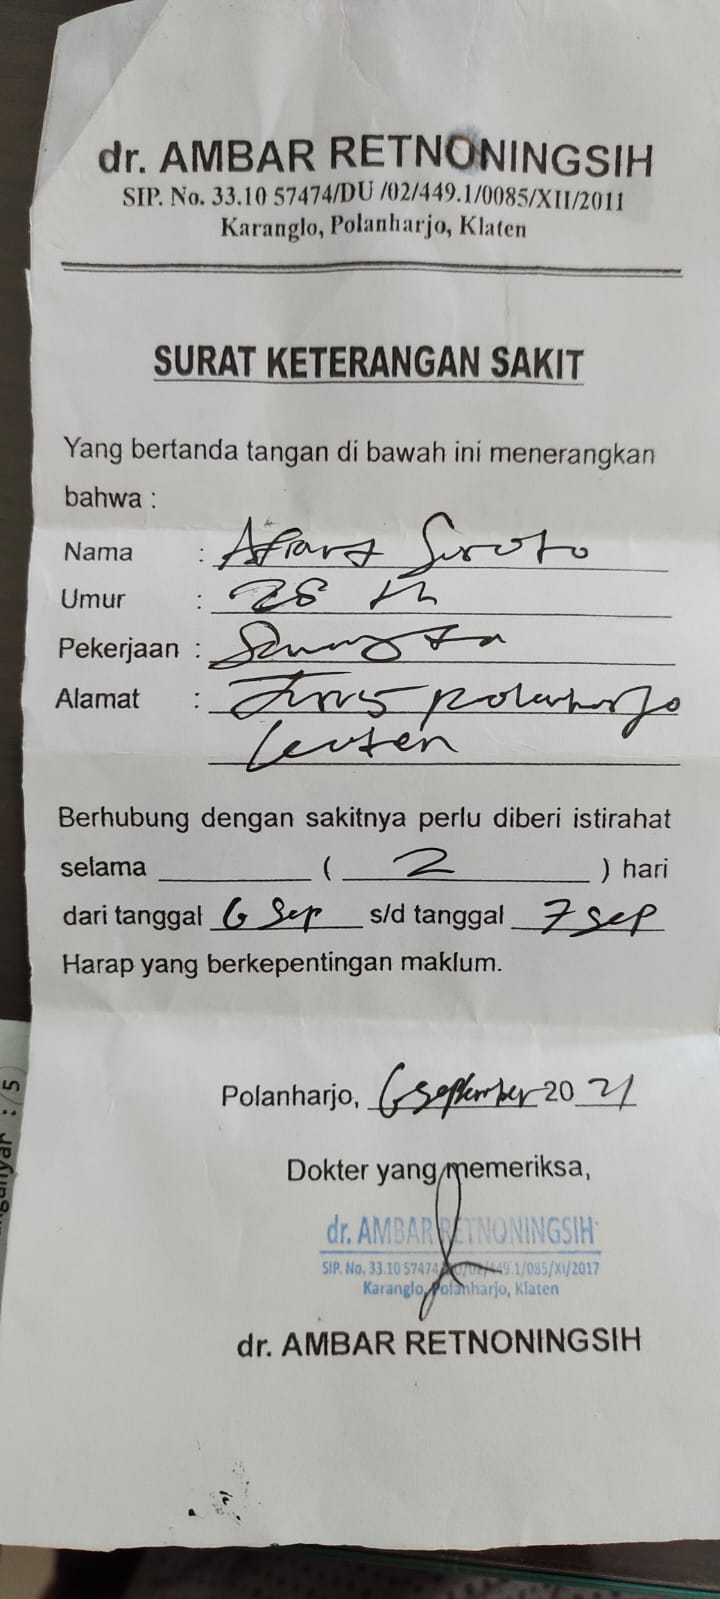 dr. AMBAR RETNONINGSIH
SIP. No. 33.10 57474/DU /02/449.1/0085/XII/2011
Karanglo, Polanharjo, Klaten
SURAT KETERANGAN SAKIT
Yang bertanda tangan di bawah ini menerangkan
bahwa :
Nama :
Umur : 28 th
Pekerjaan : Swasta
Alamat : polanharjo
Klaten
Berhubung dengan sakitnya perlu diberi istirahat
selama ( 2 ) hari
dari tanggal 6 Sep s/d tanggal 7 sep
Harap yang berkepentingan maklum.
Polanharjo, 6 september 20 21
Dokter yang memeriksa,
dr. AMBAR RETNONINGSIH
SIP. No. 33.10 57474 /02/449.1/085/XI/2017
Karanglo, Polanharjo, Klaten
dr. AMBAR RETNONINGSIH
: 5